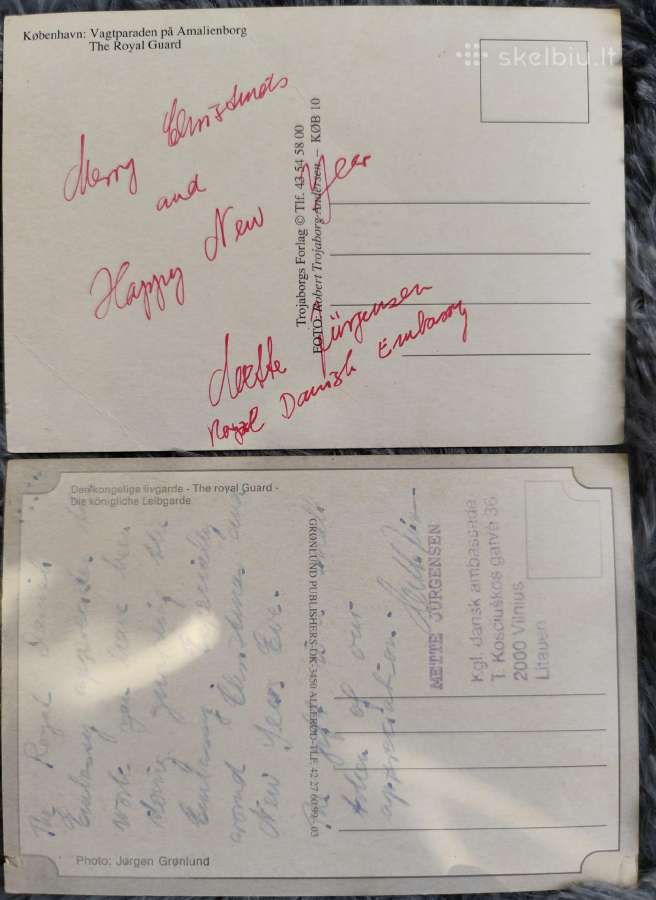 København: Vagtparaden på Amalienborg
The Royal Guard
skelbiu.lt
Merry Christmas
and
Happy New Year
Mette Jürgensen
Royal Danish Embassy
Trojaborgs Forlag © Tlf. 43 54 58 00
FOTO: Robert Trojaborg Andersen – KØB 10
Den kongelige livgarde - The royal Guard -
Die königliche Leibgarde.
The Royal Danish
Embassy
work you have
during
Embassy especially
around Christmas and
New Years Eve.
token of our
appreciation.
GRØNLUND PUBLISHERS-DK-3450 ALLERØD-TLF. 42 27 60 99
METTE JÜRGENSEN
Kgl. dansk ambassade
T. Kosciuskos gatve 36
2000 Vilnius
Litauen
Photo: Jørgen Grønlund